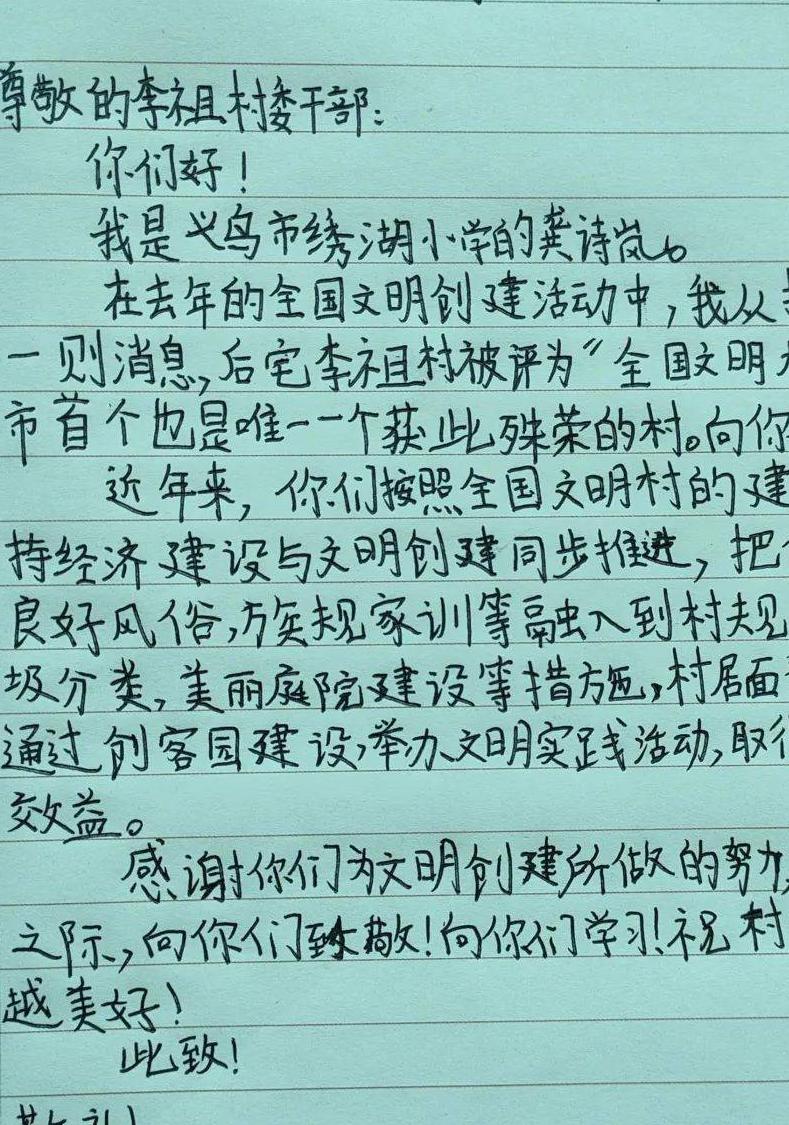 尊敬的李祖村委干部：
你们好！
我是义乌市绣湖小学的龚诗岚。
在去年的全国文明创建活动中，我从
一则消息，后宅李祖村被评为“全国文明
市首个也是唯一一个获此殊荣的村。向你
近年来，你们按照全国文明村的建
持经济建设与文明创建同步推进，把
良好风俗，族规家训等融入到村规
圾分类，美丽庭院建设等措施，村居面
通过创客园建设，举办文明实践活动，取得
效益。
感谢你们为文明创建所做的努力，
之际，向你们致敬！向你们学习！祝村
越美好！
此致！
敬礼！